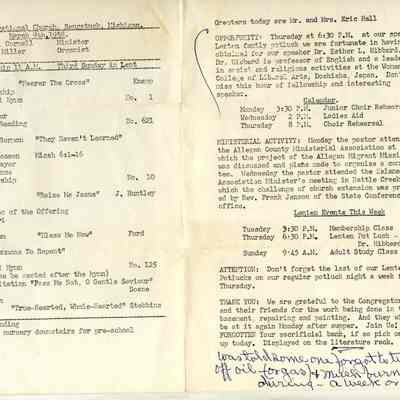 ational Church, Saugatuck, Michigan.
March 9th, 1958.
Cornell Minister
Miller Organist
ip 11 A.M. Third Sunday in Lent
"Nearer The Cross" Knapp
ship
l Hymn No. 1
er
Reading No. 621
Sermon "They Haven't Learned"
esson Micah 6:1-16
ayer
onse
ship No. 10
"Seize Me Jesus" J. Huntley
on of the Offering
ri
em "Bless Me Now" Ford
"easons To Repent"
l Hymn No. 125
s be seated after the hymn)
itation "Pass Me Not, O Gentle Saviour"
Doane
n
"True-Hearted, Whole-Hearted" Stebbins
nding
nursery downstairs for pre-school
Greeters today are Mr. and Mrs. Eric Hall
OPPORTUNITY: Thursday at 6:30 P.M. at our spe
Lenten family potluck we are fortunate in havin
obtained for our speaker Dr. Esther L. Hibbard.
Dr. Hibbard is professor of English and a leade
in social and religious activities at the Women
College of Liberal Arts, Doshisha, Japan. Don't
miss this hour of fellowship and interesting
speaker.
Calendar.
Monday 3:30 P.M. Junior Choir Rehearsa
Wednesday 2 P.M. Ladies Aid
Thursday 8 P.M. Choir Rehearsal
MINISTERIAL ACTIVITY: Monday the pastor attend
the Allegan County Ministerial Association at
which the project of the Allegan Migrant Missio
was discussed and plans made to organize a coun
tee. Wednesday the pastor attended the Kalama
Association Minister's meeting in Battle Creek
which the challenge of church extension was pre
ed by Rev. Frank Jenson of the State Conference
office.
Lenten Events This Week
Tuesday 3:30 P.M. Membership Class
Thursday 6:30 P.M. Lenten Pot Luck -
Dr. Hibbard
Sunday 9:45 A.M. Adult Study Class
ATTENTION: Don't forget the last of our Lenten
Potlucks on our regular potluck night next week
Thursday.
THANK YOU: We are grateful to the Congregation
and their friends for the work being done in the
basement, repairing and painting. And they will
be at it again Monday after supper. Join Us!
FORGOTTEN Your sacrificial bank, if so pick one
up today. Displayed on the literature rack.
was told some one forgot to tu
off oil (or gas) & much burn
during - a week or